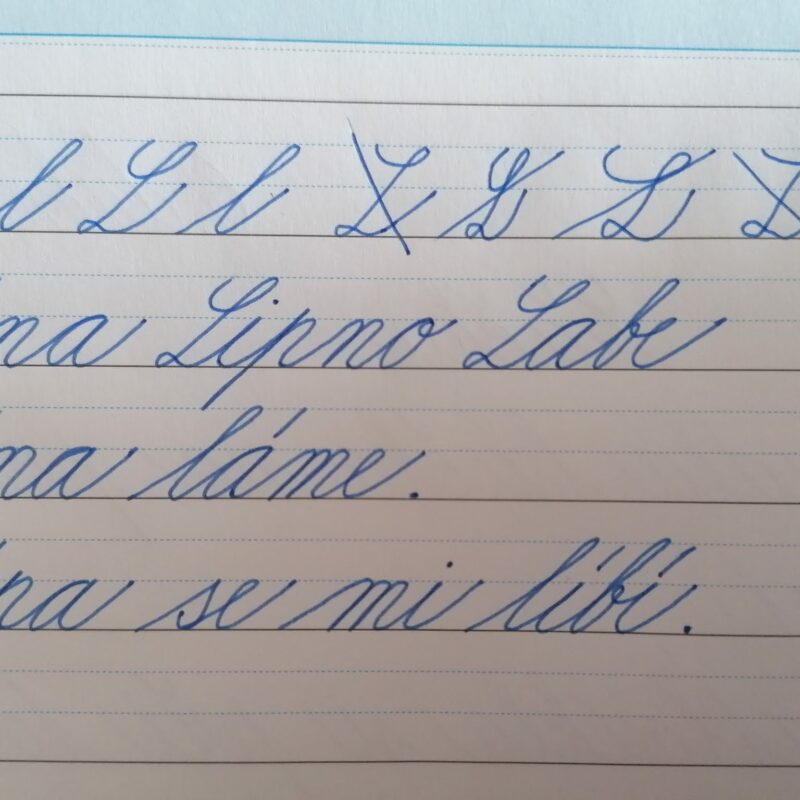 l L l L L L L
na Lipno Labe
na láme.
pa se mi líbí.